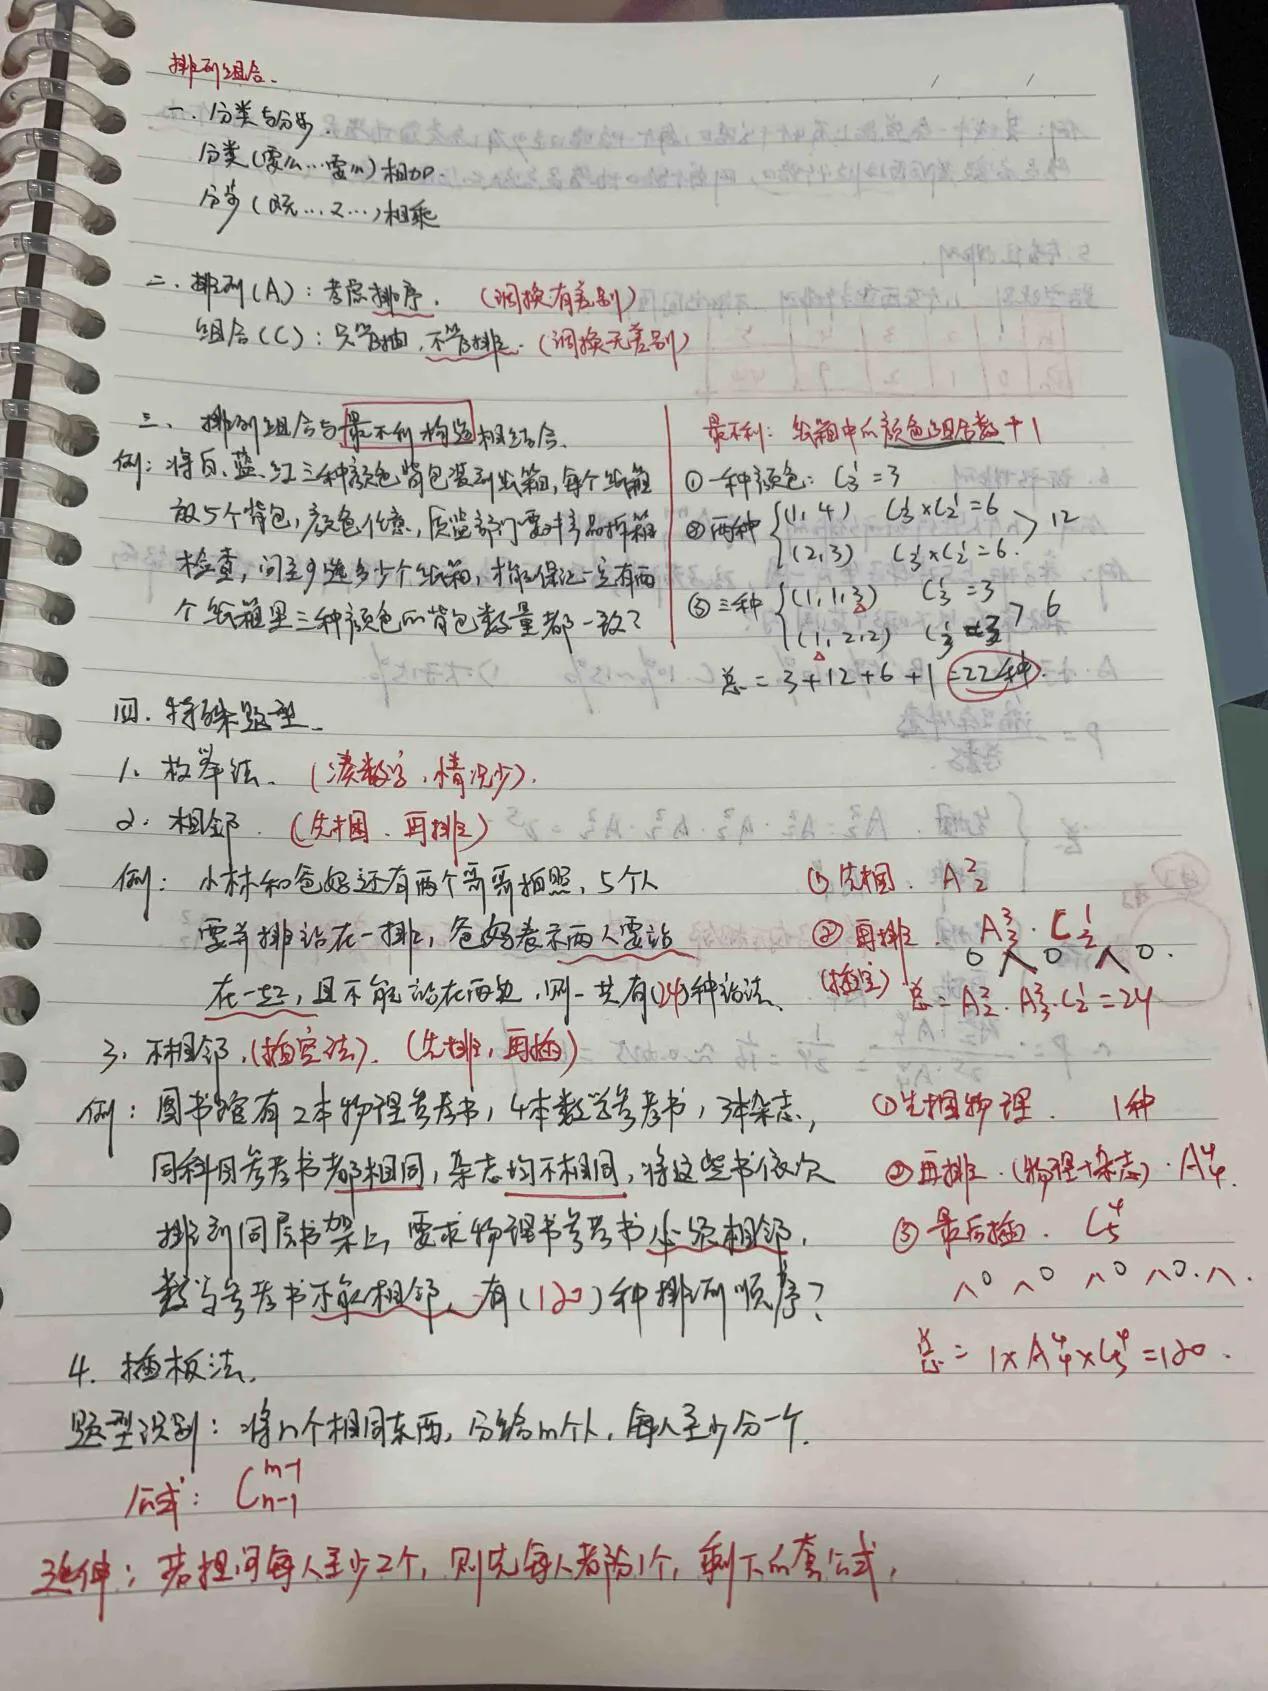 排列组合.
一. 分类与分步.
分类(要么…要么)相加.
分步(既…又…)相乘
二. 排列(A): 考虑排序. (调换有差别)
组合(C): 只管抽, 不管排. (调换无差别)
三. 排列组合与最不利构造相结合.
例: 将白、蓝、红三种颜色背包装到纸箱, 每个纸箱
放5个背包, 颜色任意, 质监部门要对产品拆箱
检查, 问至少选多少个纸箱, 才能保证一定有两
个纸箱里三种颜色的背包数量都一致?
最不利: 纸箱中的颜色组合数+1
① 一种颜色: C₃¹=3
② 两种 { (1,4) C₃¹×C₂¹=6
(2,3) C₃¹×C₂¹=6. > 12
③ 三种 { (1,1,3) C₃¹=3
(1,2,2) C₃¹=3 > 6
总=3+12+6+1=22种.
四. 特殊题型.
1. 枚举法. (凑数字, 情况少).
2. 相邻. (先捆. 再排)
例: 小林和爸妈还有两个哥哥拍照, 5个人
要并排站在一排, 爸妈表示两人要站
在一起, 且不能站在两边, 则一共有(24)种站法.
① 先捆. A₂²
② 再排. A₃³·C₂¹
(插空) 0 ∧ 0 ∧ 0.
总=A₂²·A₃³·C₂¹=24
3. 不相邻. (插空法). (先排, 再插)
例: 图书馆有2本物理参考书, 4本数学参考书, 3本杂志,
同科目参考书都相同, 杂志均不相同, 将这些书依次
排到同层书架上, 要求物理书参考书必须相邻,
数学参考书不能相邻. 有(120)种排列顺序?
① 先捆物理. 1种
② 再排. (物理+杂志). A₄⁴.
③ 最后插. C₅⁴
∧0 ∧0 ∧0 ∧0.∧.
总=1×A₄⁴×C₅⁴=120.
4. 插板法.
题型识别: 将n个相同东西, 分给m个人, 每人至少分一个.
公式: Cₙ₋₁ᵐ⁻¹
延伸: 若提问每人至少2个, 则先每人都分1个, 剩下的套公式.